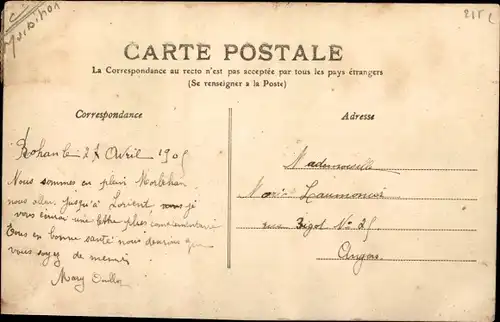 Morbihan
CARTE POSTALE
La Correspondance au recto n'est pas acceptée par tous les pays étrangers
(Se renseigner a la Poste)
Correspondance
Adresse
Rohan le 27 Avril 1905
Nous sommes en plein Morbihan
nous allons jusqu'à Lorient je
vous envoi une lettre plus complémentaire
Tous en bonne santé nous désirons que
vous soyez de même
Mary
Mademoiselle
Beaumonnier
rue Bigot No 25
Angers